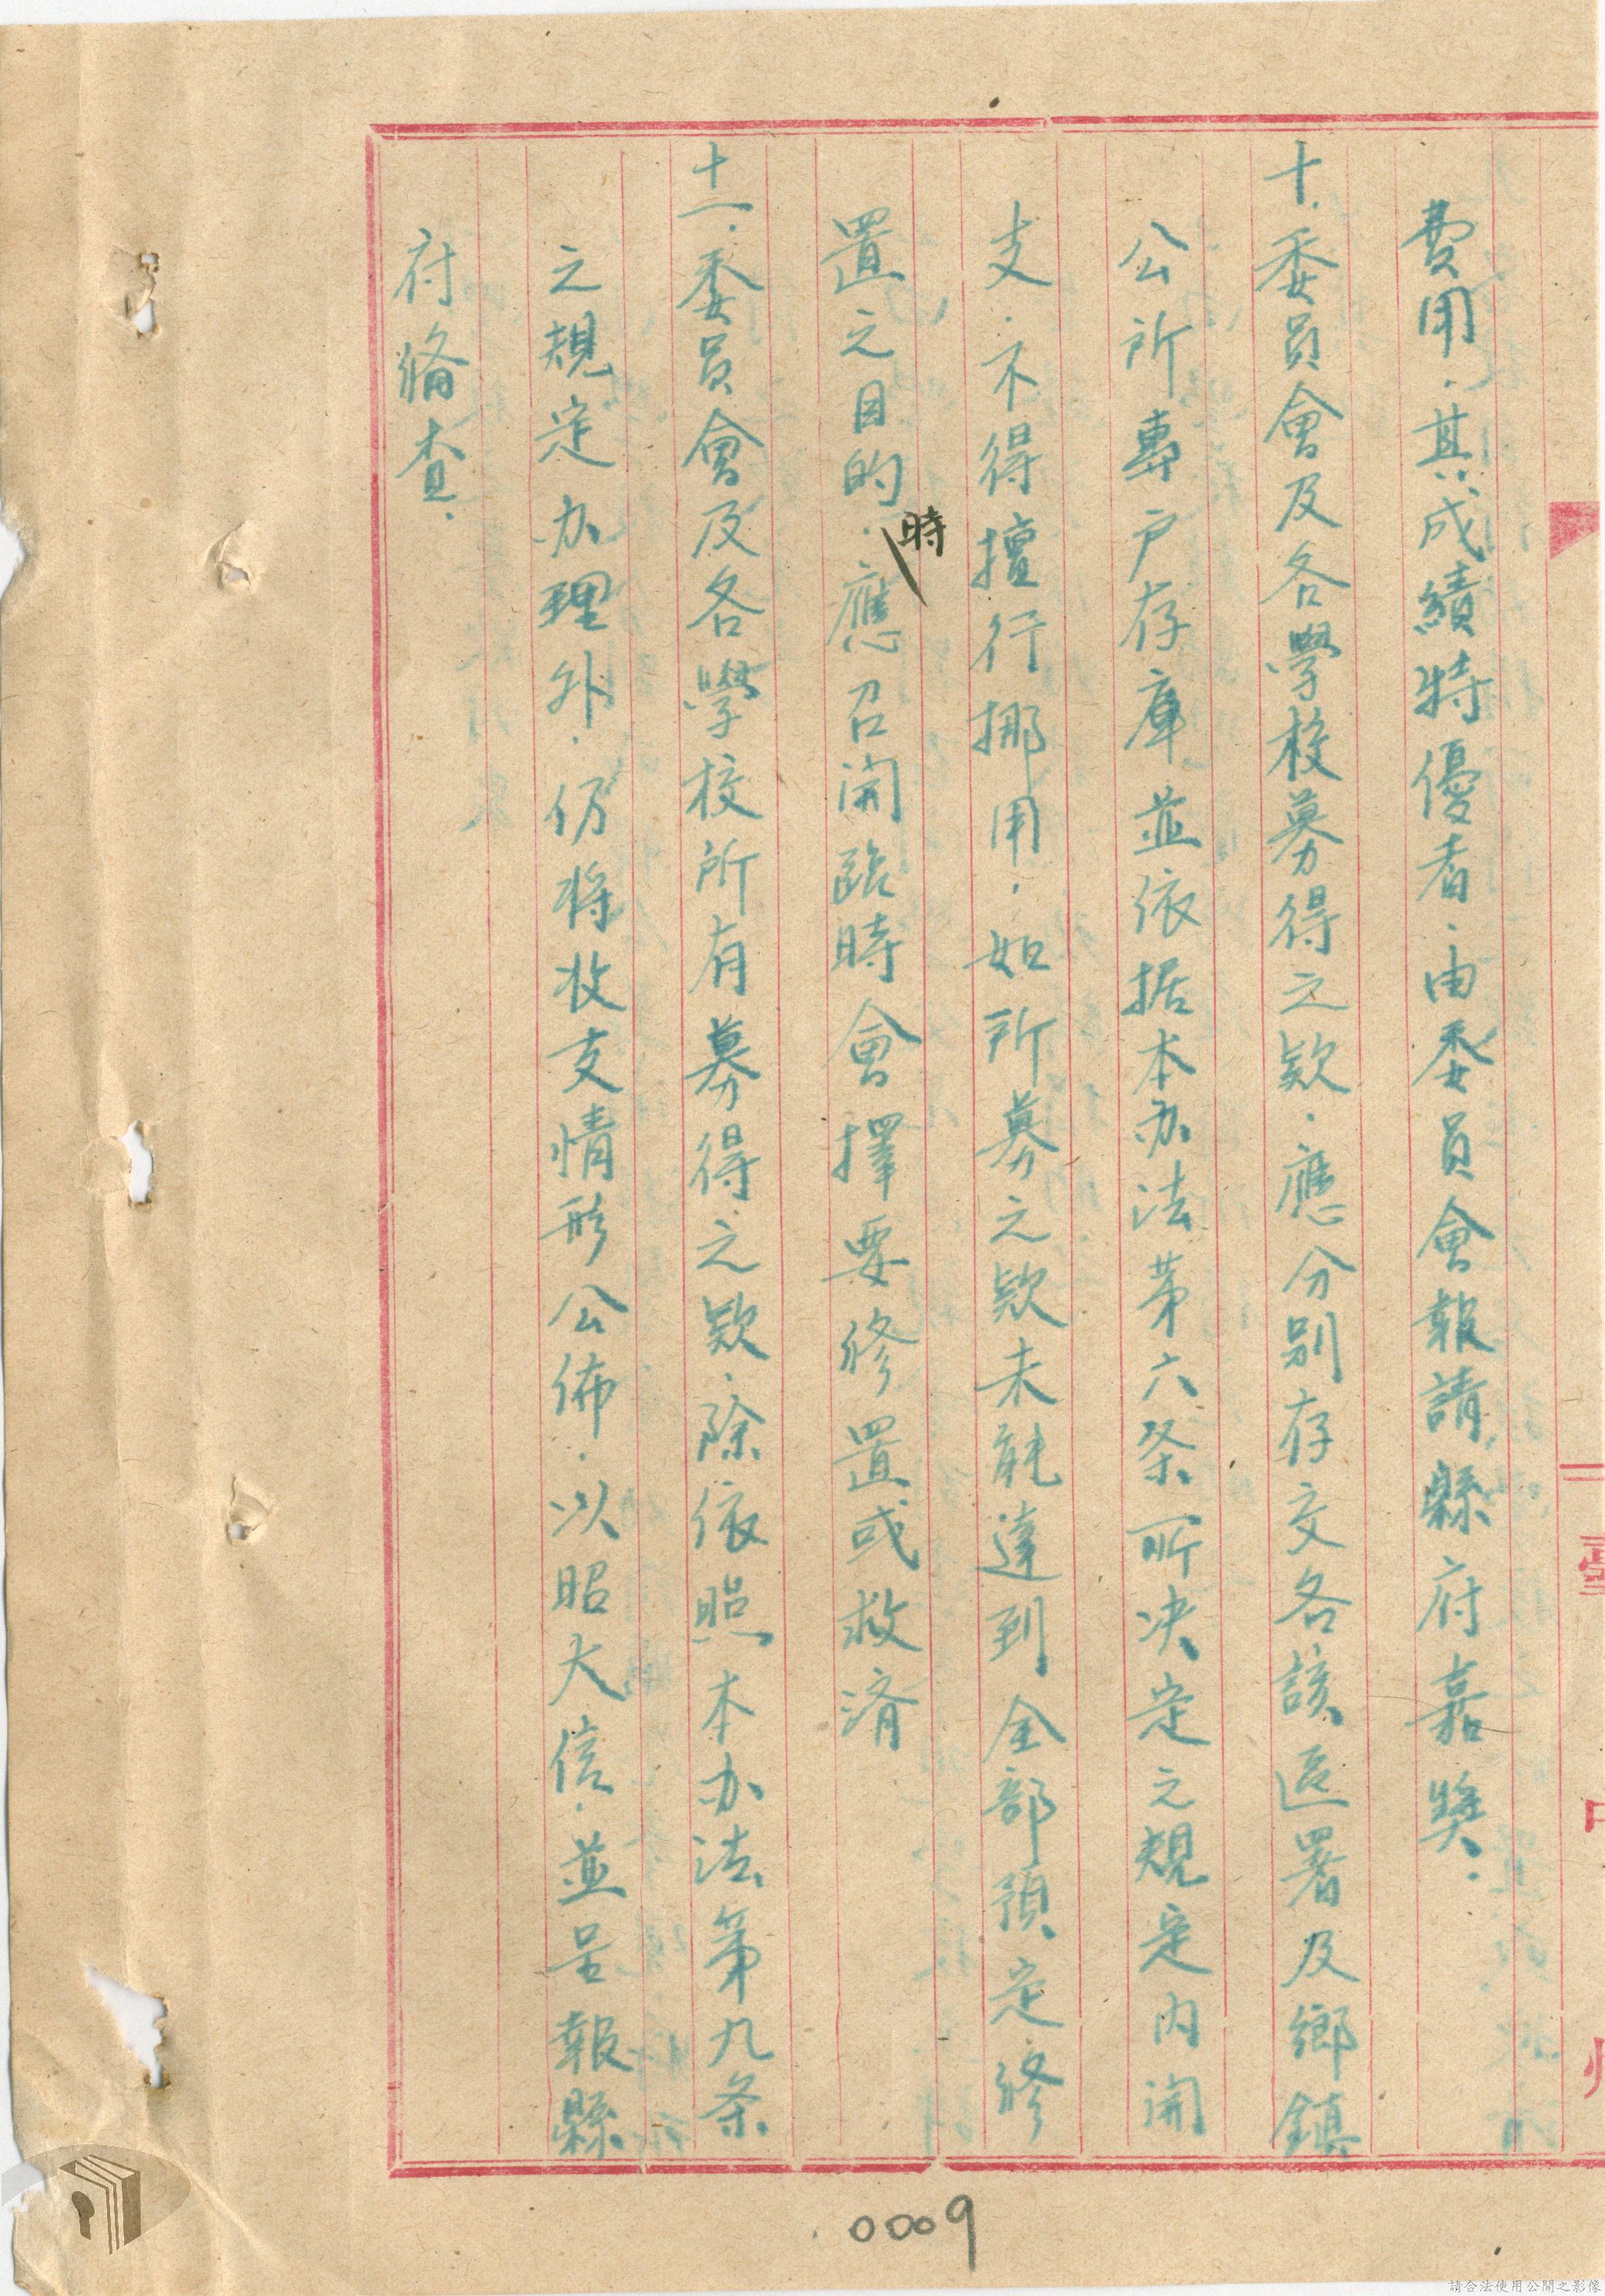 費用．其成績特優者．由委員會報請縣府嘉奬．
十．委員會及各學校募得之欵．應分別存交各該區署及鄉鎮
公所專户存庫並依据本办法苐六条所决定之規定内開
支．不得擅行挪用．如所募之欵未能達到全部預定修
置之目的．時應召開臨時會擇要修置或救济
十一．委員會及各學校所有募得之欵．除依照本办法第九条
之規定办理外．仍将收支情形公佈．以昭大信．並呈報縣
府俻查．
臺中
0009
請合法使用公開之影像